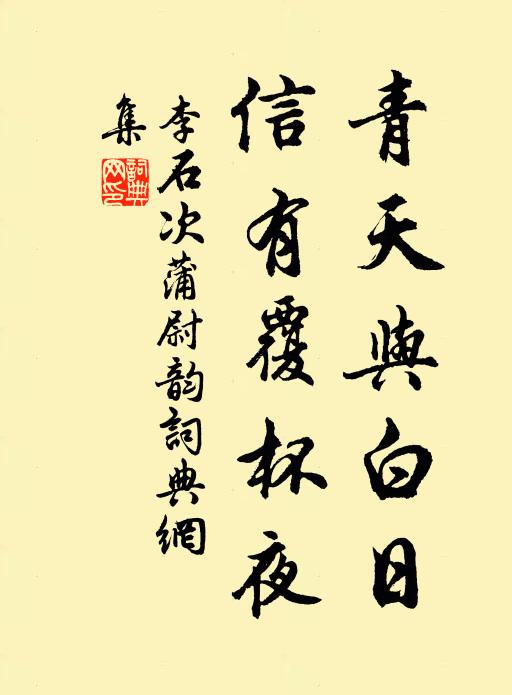 青天與白日
信有覆杯夜
李石次蒲尉韵詞典網
集
詞典网印